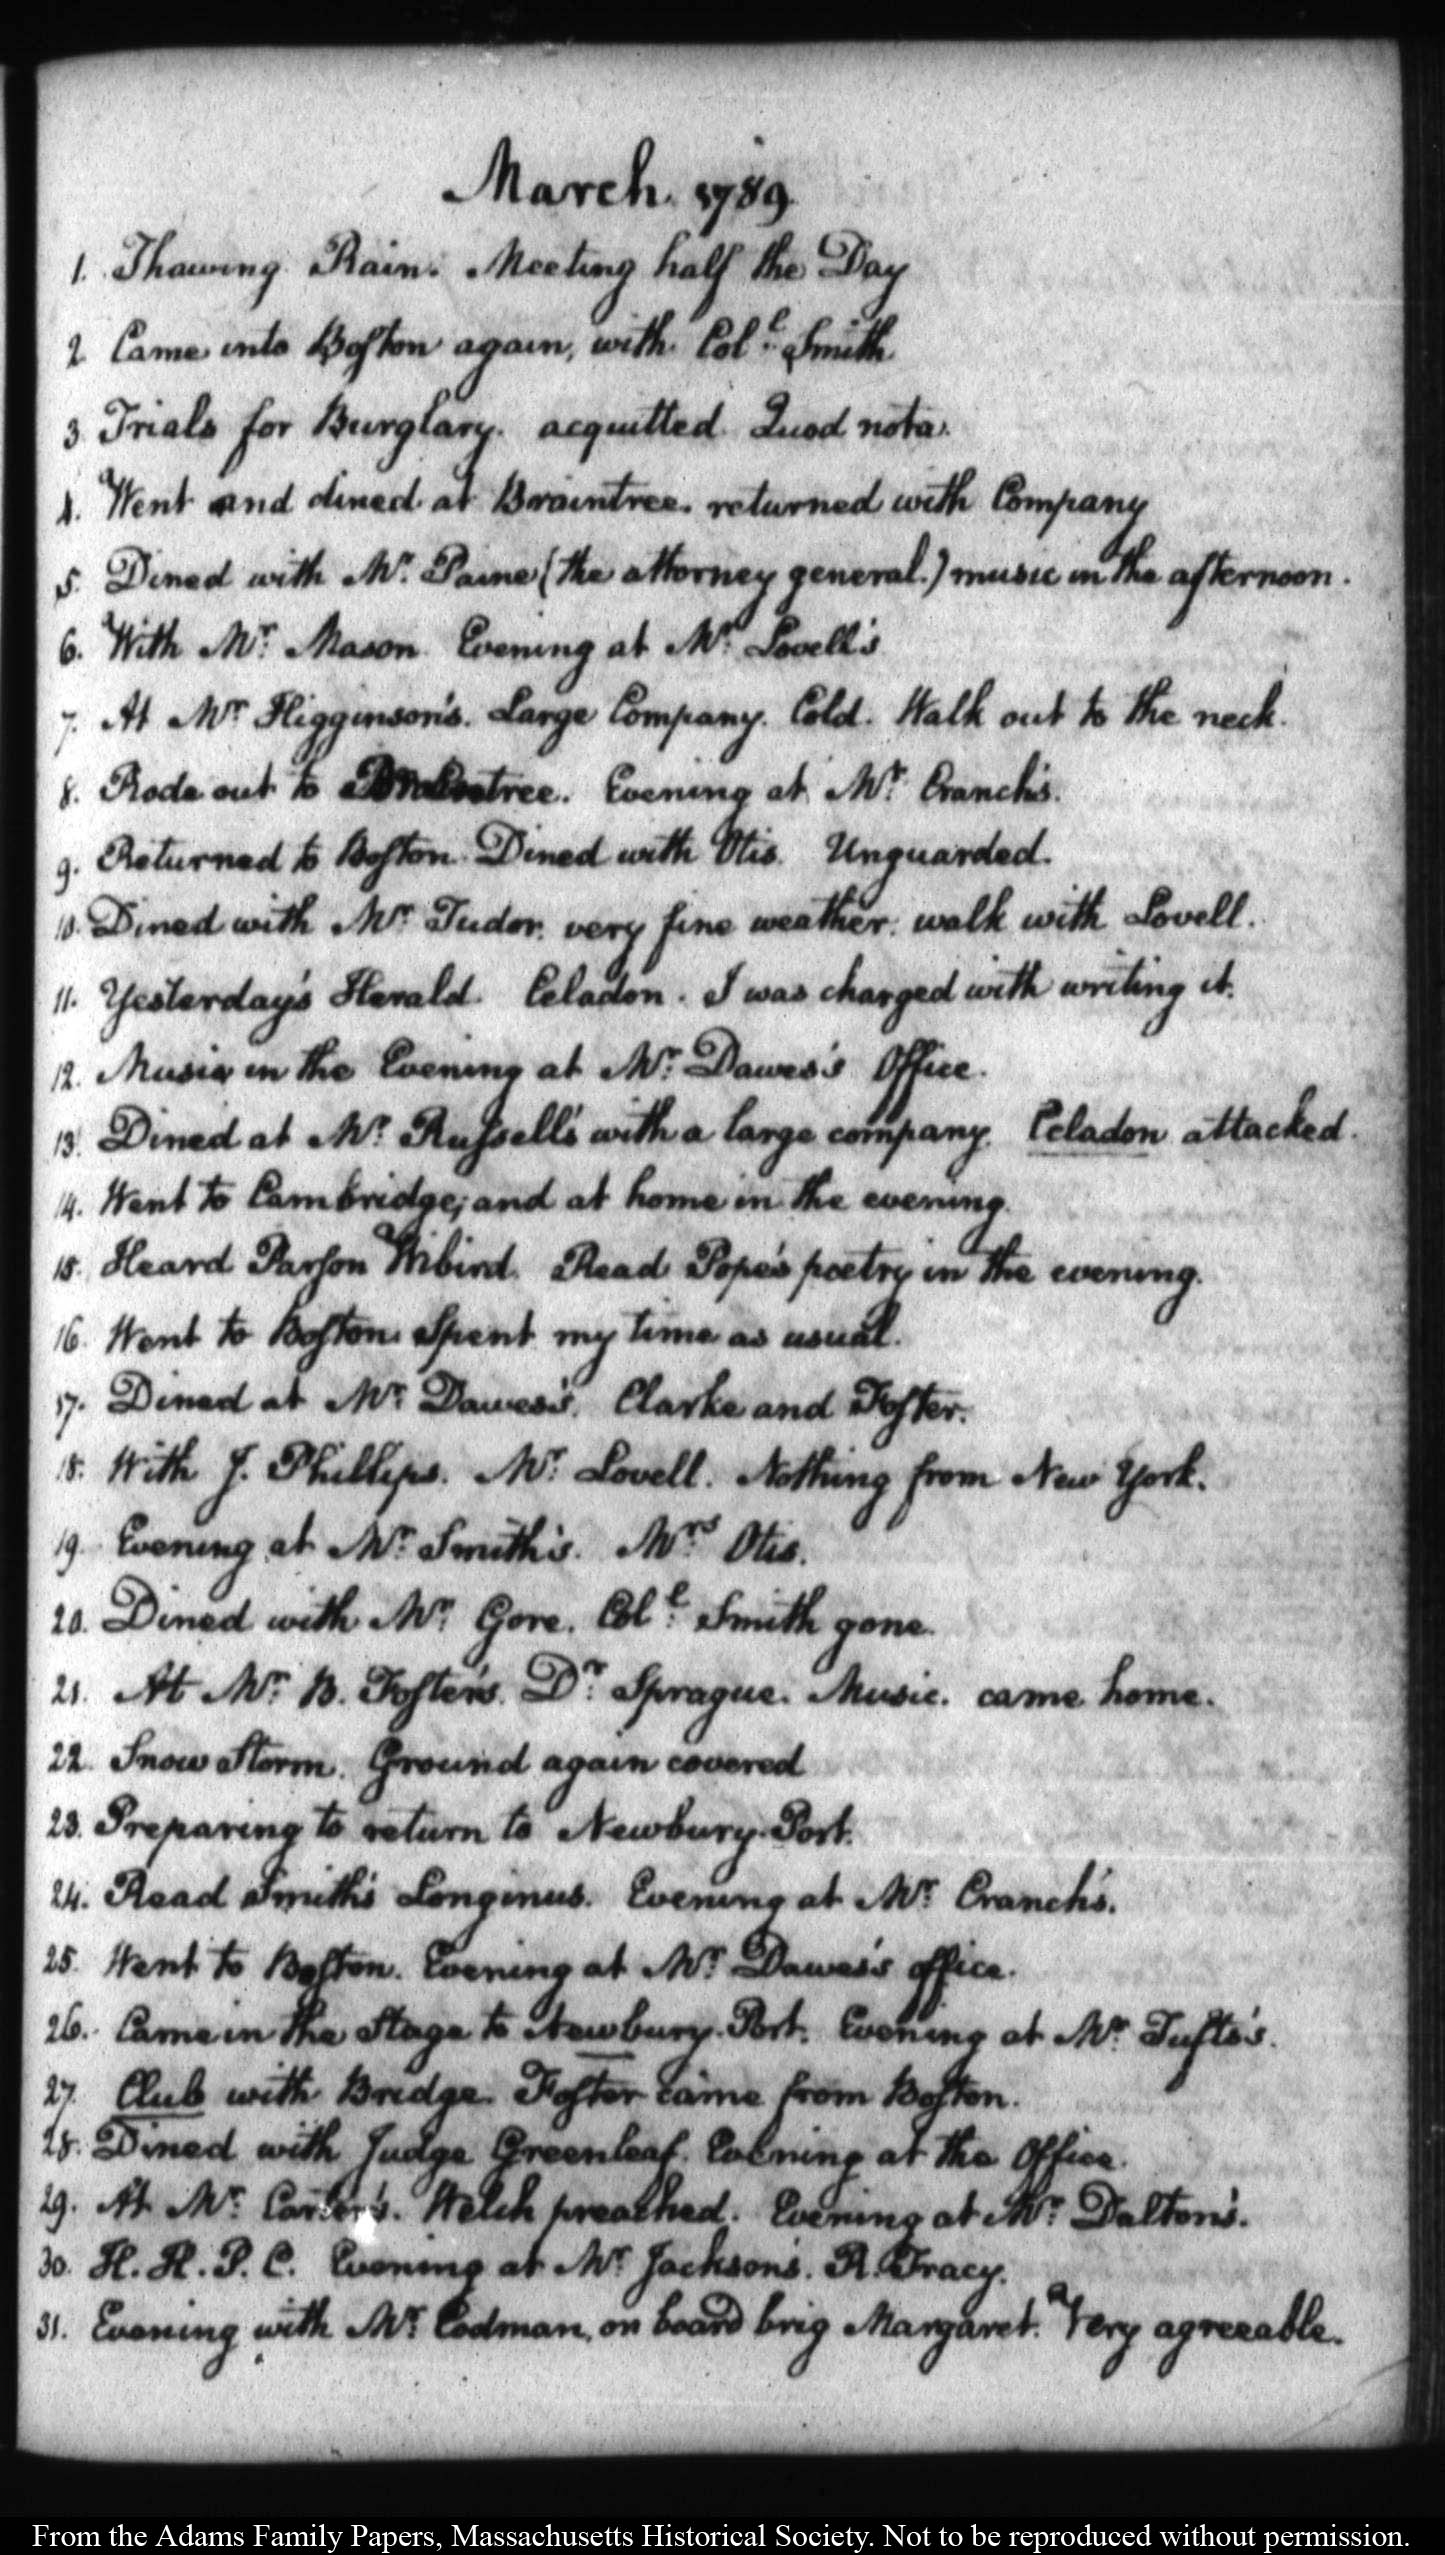 March. 1789.
1. Thawing Rain. Meeting half the Day
2 Came into Boston again, with Col.l Smith
3 Trials for Burglary. acquitted. Quod nota.
4. Went and dined at Braintree. returned with Company
5. Dined with Mr. Paine (the attorney general.) music in the afternoon.
6. With Mr. Mason. Evening at Mr. Lovell's
7. At Mr. Higginson's. Large Company. Cold. Walk out to the neck.
8. Rode out to Braintree. Evening at Mr. Cranch's.
9. Returned to Boston. Dined with Otis. Unguarded.
10. Dined with Mr. Tudor. very fine weather. walk with Lovell.
11. Yesterday's Herald. Celadon. I was charged with writing it.
12. Music in the Evening at Mr. Dawes's Office.
13. Dined at Mr. Russell's with a large company. Celadon attacked.
14. Went to Cambridge; and at home in the evening.
15. Heard Parson Wibird. Read Pope's poetry in the evening.
16. Went to Boston. Spent my time as usual.
17. Dined at Mr. Dawes's. Clarke and Foster.
18. With J. Phillips. Mr. Lovell. Nothing from New York.
19. Evening at Mr. Smith's. Mrs. Otis.
20. Dined with Mr. Gore. Col.l Smith gone.
21. At Mr. B. Foster's. Dr. Sprague. Music. came home.
22. Snow Storm. Ground again covered
23. Preparing to return to Newbury-Port.
24. Read Smith's Longinus. Evening at Mr. Cranch's.
25. Went to Boston. Evening at Mr. Dawes's office.
26. Came in the Stage to Newbury-Port. Evening at Mr. Tufts's.
27. Club with Bridge. Foster came from Boston.
28. Dined with Judge Greenleaf. Evening at the Office.
29. At Mr. Carter's. Welch preached. Evening at Mr. Dalton's.
30. H. H. P. C. Evening at Mr. Jackson's. R. Tracy.
31. Evening with Mr. Codman, on board brig Margaret. Very agreeable.
From the Adams Family Papers, Massachusetts Historical Society. Not to be reproduced without permission.